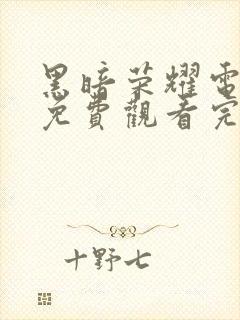 黑暗荣耀電
免費觀看完
十野七